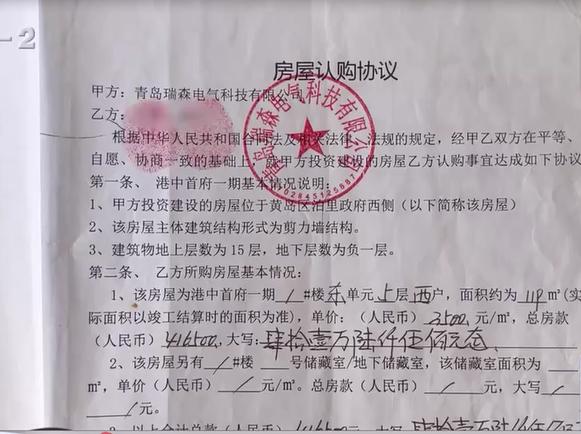 -2
房屋认购协议
甲方：青岛瑞森电气科技有限公司
乙方：
根据中华人民共和国合同法及相关法律、法规的规定，经甲乙双方在平等、
自愿、协商一致的基础上，就甲方投资建设的房屋乙方认购事宜达成如下协议
第一条、港中首府一期基本情况说明：
1、甲方投资建设的房屋位于黄岛区泊里政府西侧（以下简称该房屋）
2、该房屋主体建筑结构形式为剪力墙结构。
3、建筑物地上层数为15层，地下层数为负一层。
第二条、乙方所购房屋基本情况：
1、该房屋为港中首府一期 1 #楼 东 单元 5 层 西 户，面积约为 119 m²(实
际面积以竣工结算时的面积为准），单价：（人民币） 3500 元/m²，总房款
（人民币） 416500，大写：肆拾壹万陆仟伍佰元整
2、该房屋另有 / #楼 号储藏室/地下储藏室，该储藏室面积为
m²，单价（人民币） / 元/m²。总房款（人民币） / 元，大写
/ 元。
3、以上合计总款（人民币） 416500 元，大写
青岛瑞森电气科技有限公司